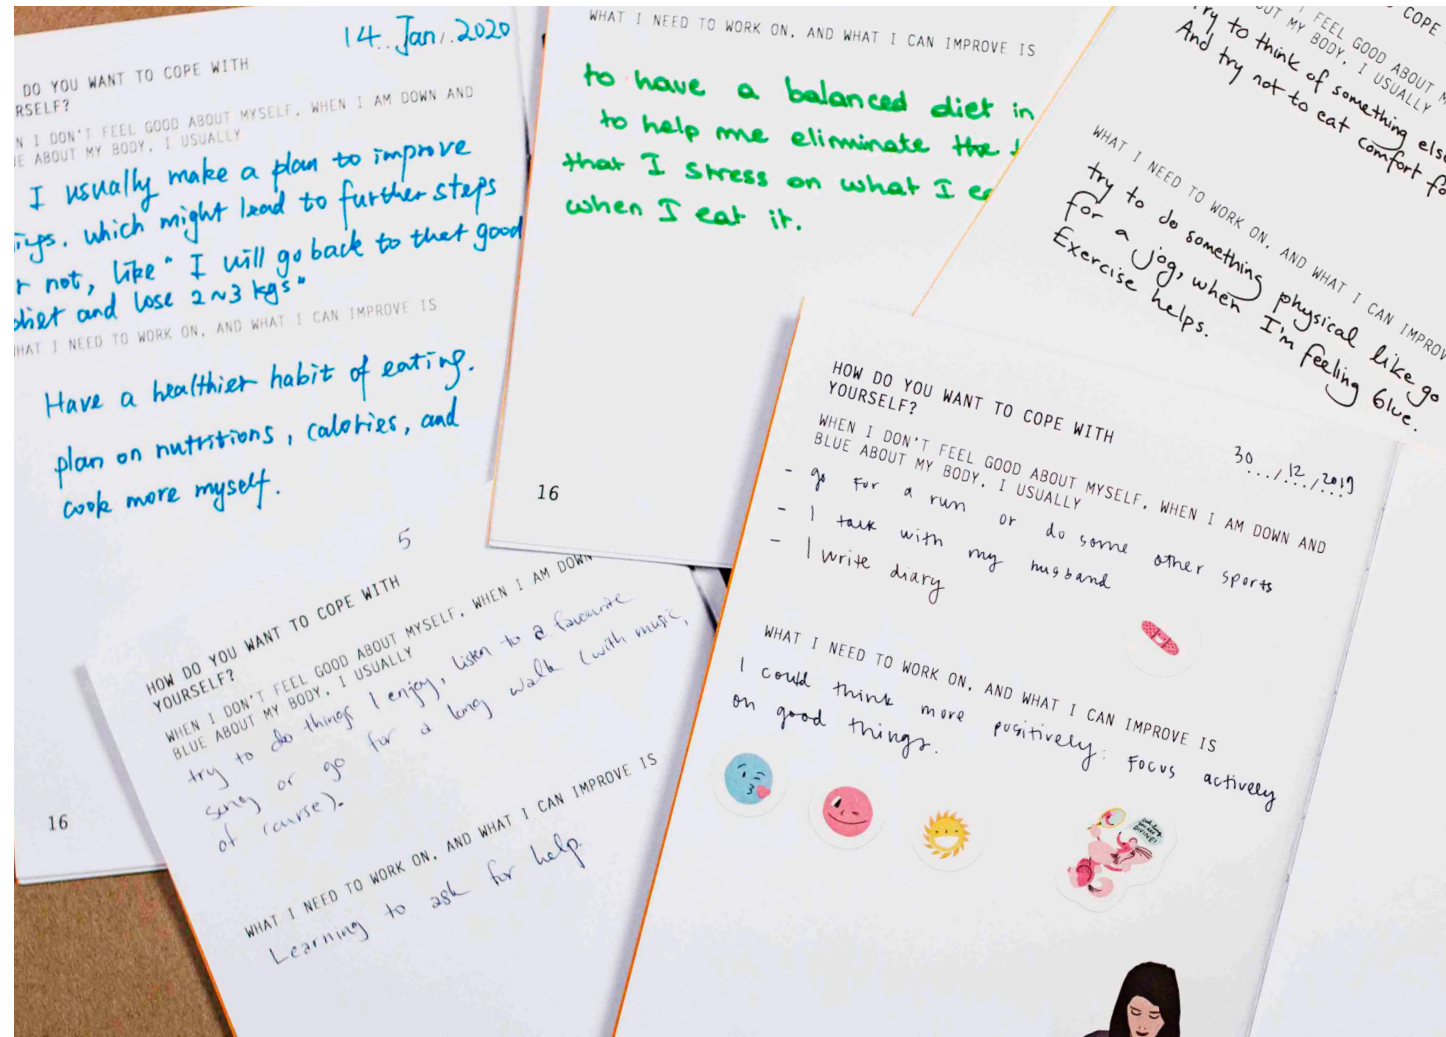 14 Jan 2020
DO YOU WANT TO COPE WITH
RSELF?
N I DON'T FEEL GOOD ABOUT MYSELF, WHEN I AM DOWN AND
E ABOUT MY BODY, I USUALLY
I usually make a plan to improve
which might lead to further steps
r not, like " I will go back to that good
diet and lose 2~3 kgs"
HAT I NEED TO WORK ON, AND WHAT I CAN IMPROVE IS
Have a healthier habit of eating.
plan on nutritions, calories, and
cook more myself.
16
WHAT I NEED TO WORK ON, AND WHAT I CAN IMPROVE IS
to have a balanced diet in
to help me eliminate the
that I stress on what I
when I eat it.
16
COPE
FEEL GOOD ABOUT
OUT MY BODY, I USUALLY
ry to think of something else
And try not to eat comfort fo
WHAT I NEED TO WORK ON, AND WHAT I CAN IMPROV
try to do something physical like go
for a jog, when I'm feeling blue.
Exercise helps.
5
HOW DO YOU WANT TO COPE WITH
YOURSELF?
WHEN I DON'T FEEL GOOD ABOUT MYSELF, WHEN I AM DOWN
BLUE ABOUT MY BODY, I USUALLY
try to do things I enjoy, listen to a favourite
song or go for a long walk (with music,
of course).
WHAT I NEED TO WORK ON, AND WHAT I CAN IMPROVE IS
Learning to ask for help.
HOW DO YOU WANT TO COPE WITH
YOURSELF?
30/12/2019
WHEN I DON'T FEEL GOOD ABOUT MYSELF, WHEN I AM DOWN AND
BLUE ABOUT MY BODY, I USUALLY
- go for a run or do some other sports
- I talk with my husband
- I write diary
WHAT I NEED TO WORK ON, AND WHAT I CAN IMPROVE IS
I could think more positively. Focus actively
on good things.
DIVINE!